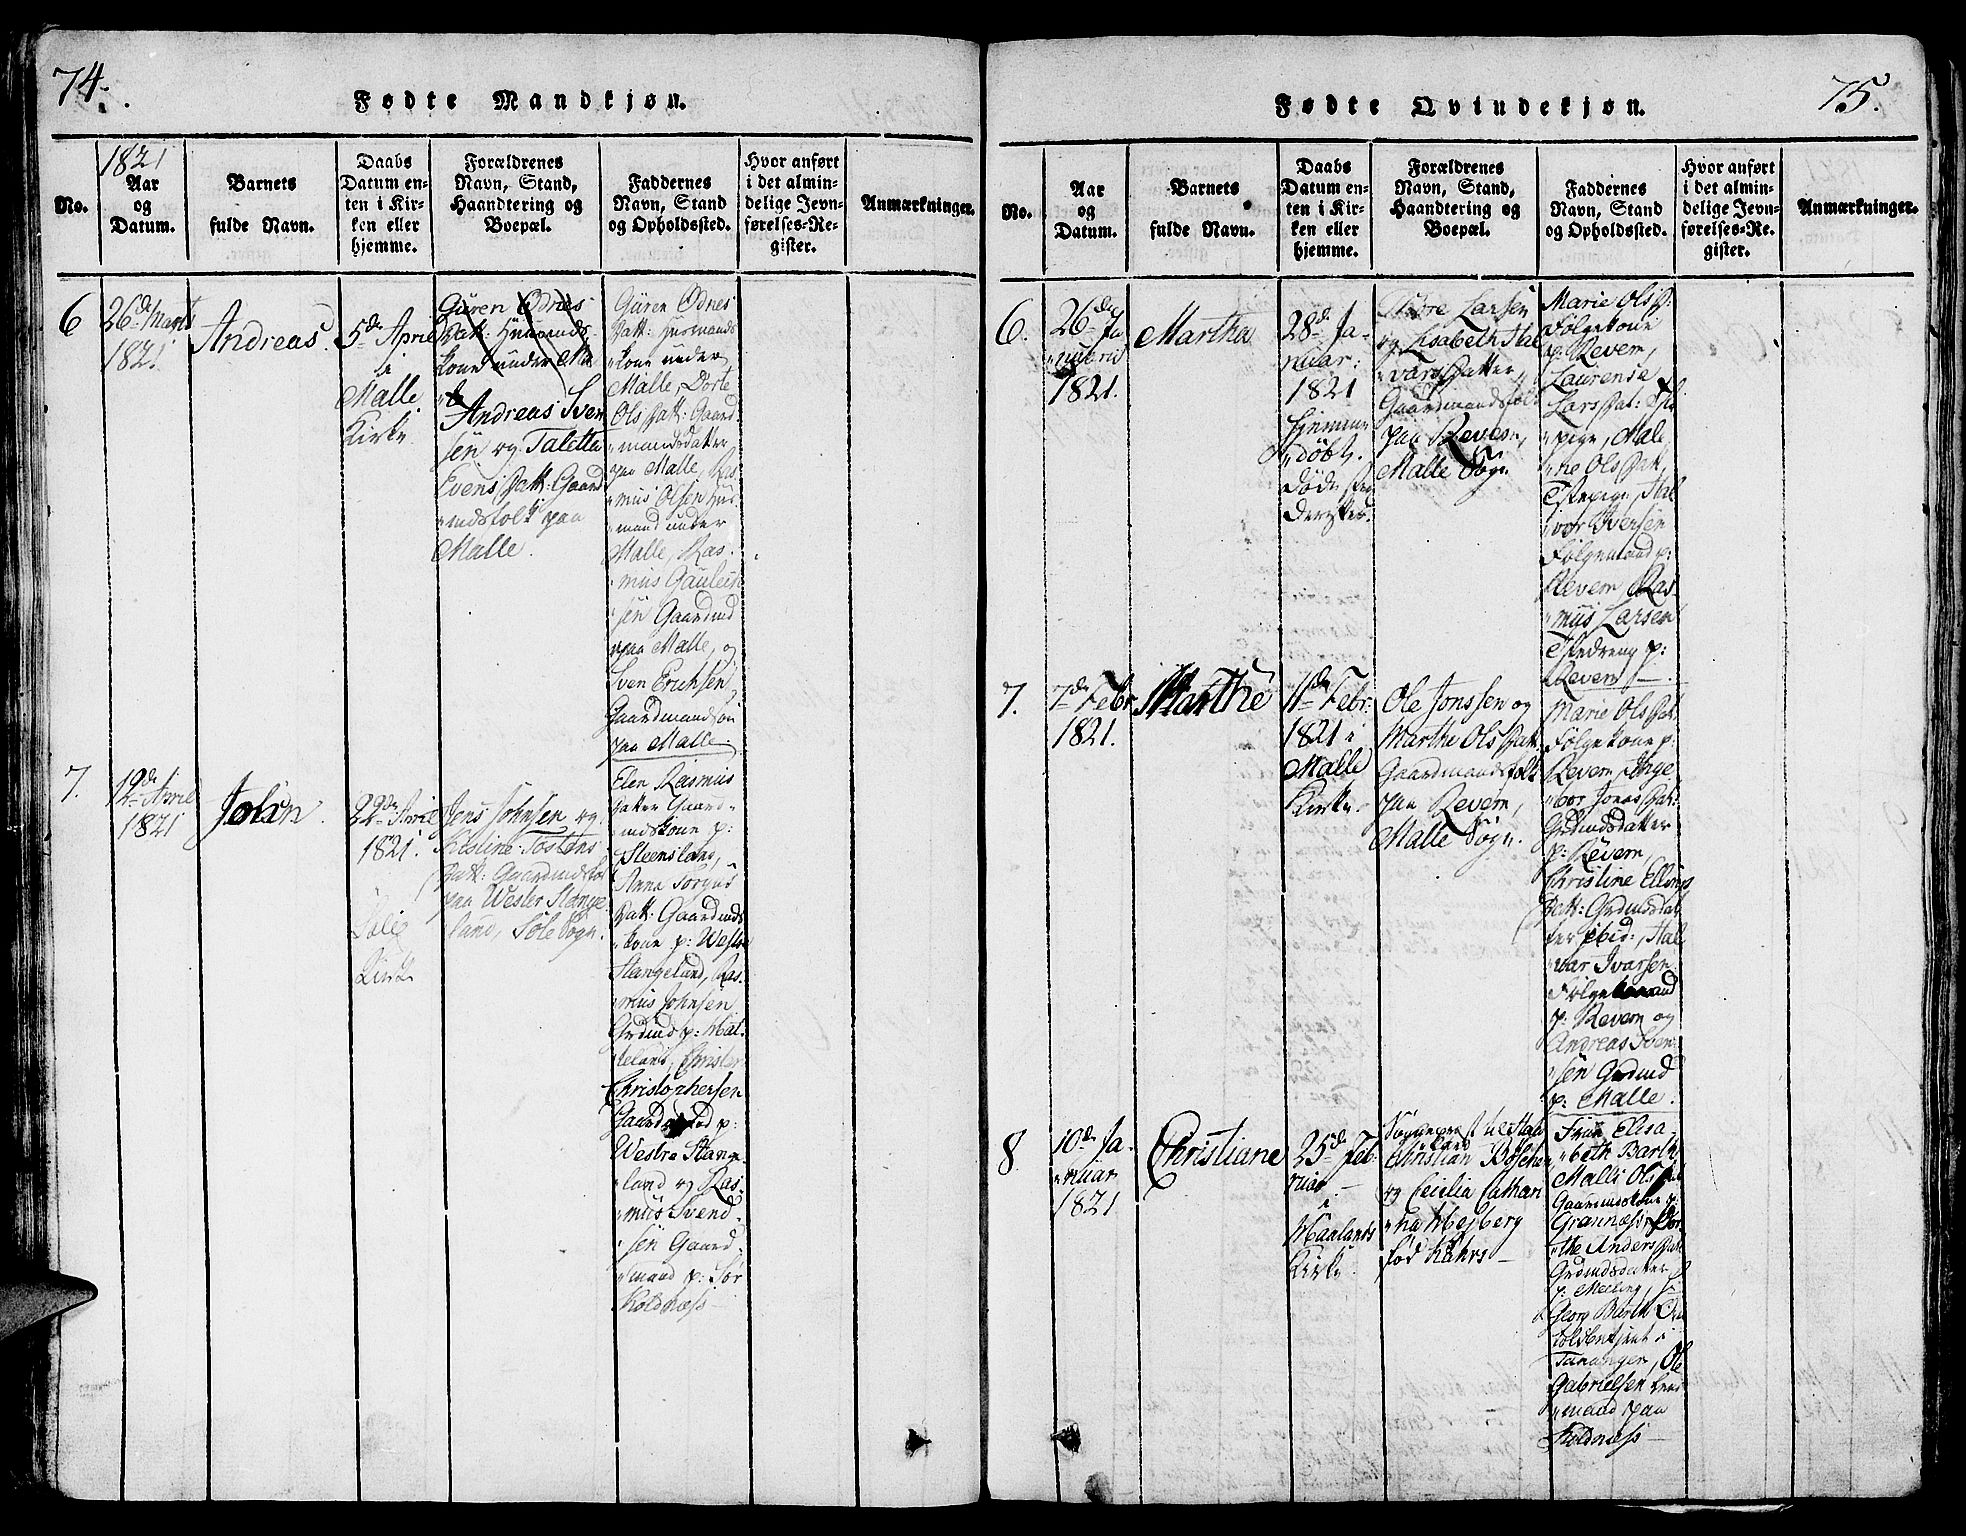 74.
Fødte Mandkjøn.
No.
1821
Aar
og
Datum.
Barnets
fulde Navn.
Daabs
Datum en-
ten i Kir-
ken eller
hjemme.
Forældrenes
Navn, Stand,
Haandtering og
Boepæl.
Faddernes
Navn, Stand
og Opholdssted.
Hvor anført
i det almin-
delige Jevn-
førelses-Re-
gister.
Anmærkninger.
6
26de Marts
1821.
Andreas.
5de April
i
Malle
Kirke
Guren Ednes
Datt: Huusmands
kone under Mal
le
Andreas Sven
sen og Taletta
Evens Datt: Gaard
mdsfolk paa
Malle.
Guren Ednes
Datt: Husmands
kone under
Malle, Dorte
Ols Datt: Gaard
mandsdatter
paa Malle, Ras
mus Olsen Hus
mand under
Malle, Ras
mus
sen Gaardmd
paa Malle, og
Sven Erichsen
Gaardmandsøn
paa Malle.
7.
19de April
1821
John.
22de April
1821.
i
Sole
Kirke
Jens Johnsen og
Kirstine Tostens
Datt: Gaardmdsfol
paa Wester Stange
land, Sole Sogn.
Elen Rasmus
datter Gaard
mdskone p:
Steensland,
Anna
Datt: Gaardmds
kone p: Westre
Stangeland, Ras
mus Johnsen
Grdmd p:
land, Christer
Christophersen
Gaardmand p:
Westre Stange
land og Ras
mus Svend
sen Gaard
mand p: Sør
Koldnæss
75.
Fødte Qvindekjøn.
No.
Aar
og
Datum.
Barnets
fulde Navn.
Daabs
Datum en-
ten i Kir-
ken eller
hjemme.
Forældrenes
Navn, Stand,
Haandtering og
Boepæl.
Faddernes
Navn, Stand
og Opholdssted.
Hvor anført
i det almin-
delige Jevn-
førelses-Re-
gister.
Anmærkninger.
6.
26de Ja
nuarii
1821.
Martha
28de Ja-
nuar:
1821
hjemme
døbt.
Død
derefter.
Larsen
og Lisabeth Hal
vars Datter,
Gaardmandsfolk
paa Revem,
Malle Sogn
Marie Ols D:
Følgekone
p: Revem,
Laurense
Lars Dat:
pige, Male
ne Ols Dat,
Hal
vor Iversen
Følgemand p:
Revem, Ras
mus Larsen
p:
Revem.
7.
7de Febr
1821.
Marthe
11de Febr:
1821 i
Malle
Kirke
Ole Jonssen og
Marthe Ols Datt.
Gaardmandsfolk
paa Revem,
Malle Sogn.
Marie Ols Dat:
Følgekone p:
Revem, Inge
bor Jonas Dat:
Grdmdsdatter
p: Revem,
Christine Ellings
Datt: Grdmsdat
ter ibid:, Hal
var Ivarsen
Følgemand
p: Revem og
Andreas Sven
sen Grdmd
p: Malle.
8
10de Ja
nuar
1821
Christiane
25de Feb
ruar
i
Haalands
Kirke
Sognepræst til Haa
land
Christian
og Cecilia Cathari
na Mejberg
fød Kahrs
Frue Elisa
beth Barth
Malli Ols Dat
Gaardmdskone p:
Grannæss, Dor
the Anders Dat:
Grdmdsdatter
p: Meling,
Georg Barth
toldbetjent i
Tananger, Ole
Gabrielsen
mand paa
Koldnæss